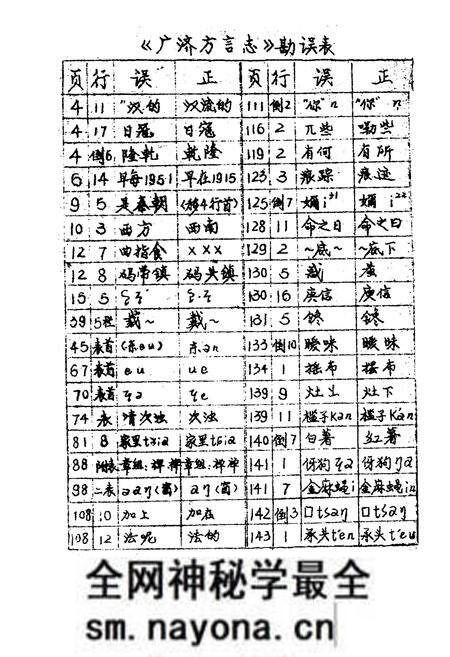 《广济方言志》勘误表
页 行 误 正 页 行 误 正
4 11 “汉的 汉流的 111 倒2 “你”n “你”n
4 17 日冠 日寇 116 2 兀些 嘞些
4 倒6 隆乾 乾隆 119 2 有何 有所
6 14 早每1951 早在1915 123 3 痕踪 痕迹
9 5 吴秦朝 (移4行首) 125 倒7 嫺i³¹ 嫺i²²
10 3 西方 西南 128 11 命之日 命之曰
12 7 曲指食 ××× 129 2 ~底~ ~底下
12 8 码带镇 码头镇 130 5
15 5 130 16 庚信 庾信
39 戴~ 戴~ 131 5
45 表首 (东əu) 东ən 133 倒10 暧味 曖昧
67 表首 eu ue 134 1 摇布 摆布
70 表首 139 9 灶匕 灶下
74 表 清次浊 次浊 139 11 槛子kan 槛子kan
81 8 家里tsia 家里tsia 140 倒7 白薯 红薯
88 章组 章组 141 1 伢狗 伢狗
98 二表 aŋ 141 7 金麻蝇i 金麻蝇in
108 10 加上 加在 142 倒3 口tsaŋ 口tsaŋ
108 12 法呢 法的 143 1 承头t'en 承头t'eu
全网神秘学最全
sm.nayona.cn